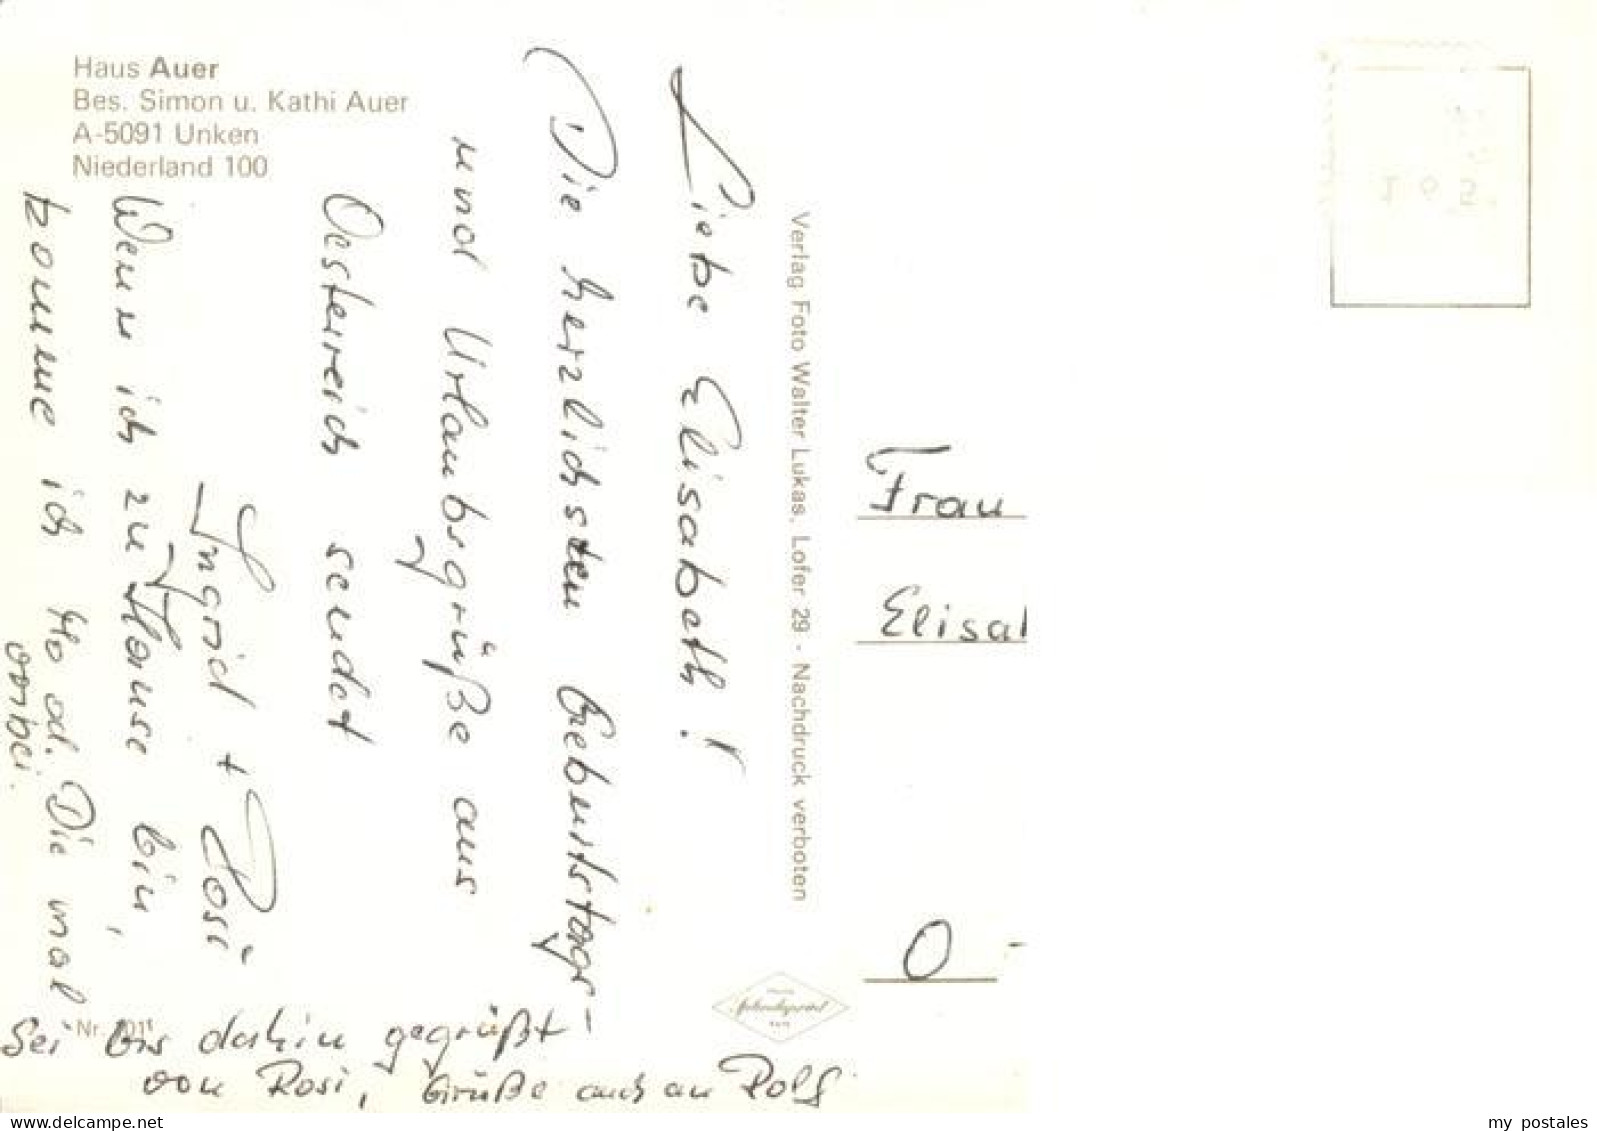 Haus Auer
Bes. Simon u. Kathi Auer
A-5091 Unken
Niederland 100
Liebe Elisabeth!
Die herzlichsten Geburtstags-
und Urlaubsgrüße aus
Oesterreich sendet
Ingrid + Rosi
Wenn ich zu Hause bin,
komme ich Mo od. Die mal
vorbei.
Sei bis dahin gegrüßt
von Rosi, Grüße auch an Rolf
Nr.
Verlag Foto Walter Lukas, Lofer 29 - Nachdruck verboten
Frau
Elisab
O -
delcampe.net
my_postales